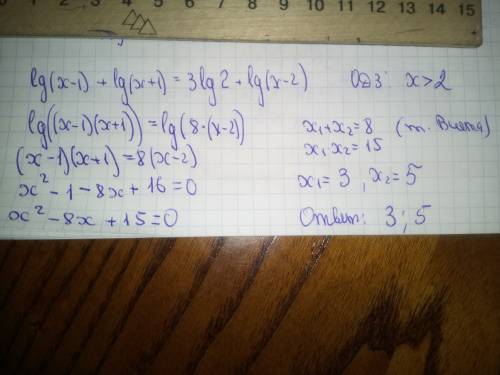 0 1 2 3 4 5 6 7 8 9 10 11 12 13 14 15
lg(x-1) + lg(x+1) = 3lg2 + lg(x-2) ОДЗ: x>2
lg((x-1)(x+1)) = lg(8·(x-2))
(x-1)(x+1) = 8(x-2)
x² - 1 - 8x + 16 = 0
x² - 8x + 15 = 0
x₁ + x₂ = 8 (т. Виета)
x₁·x₂ = 15
x₁ = 3, x₂ = 5
Ответ: 3; 5